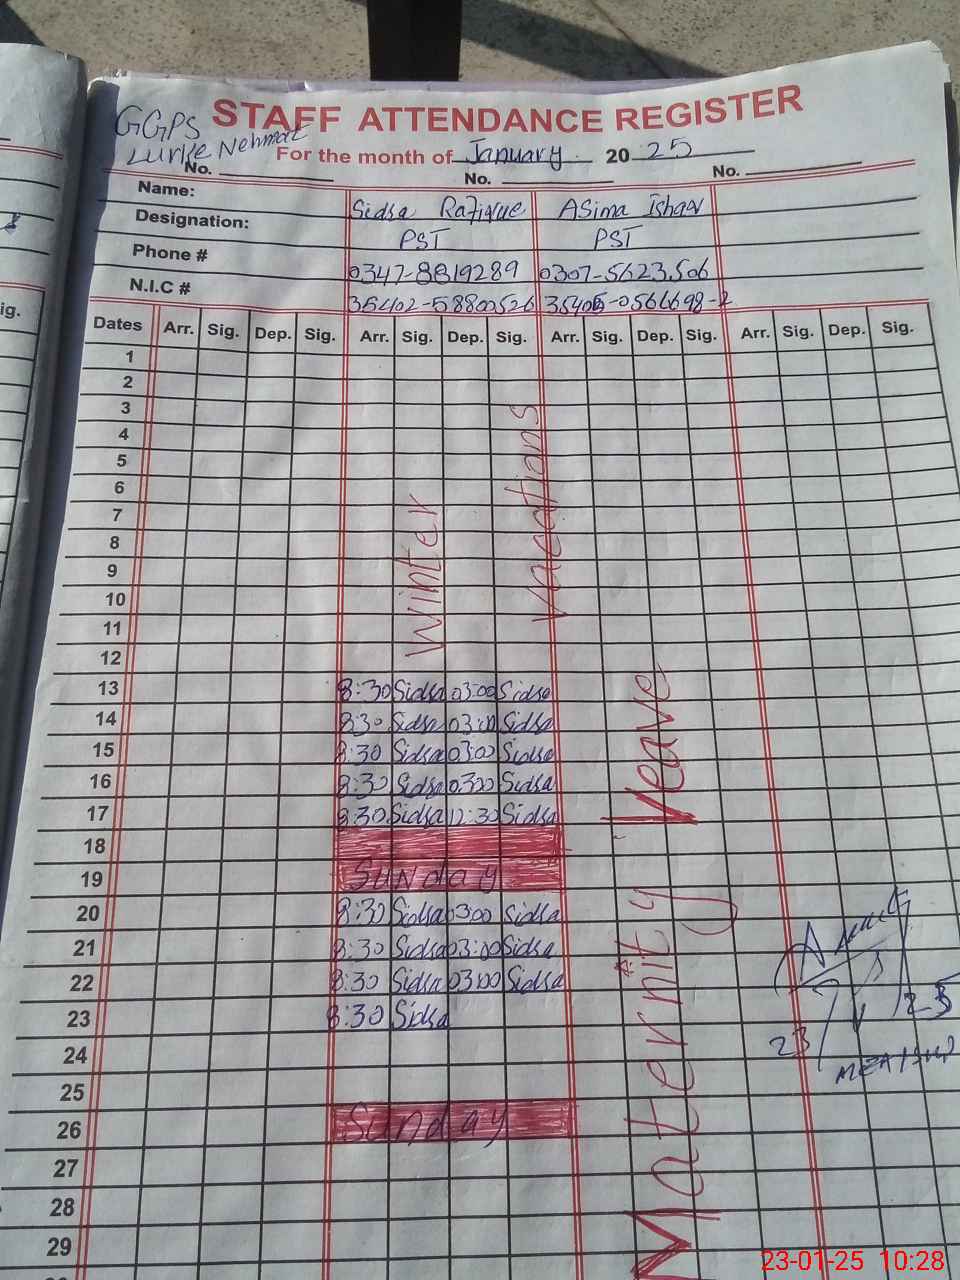 GGPS STAFF ATTENDANCE REGISTER
Lurke Nehmat For the month of January 20 25
No. No. No.
Name: Sidsa Rafique Asima Ishaq
Designation: PST PST
Phone # 0347-8819289 0307-5623506
N.I.C # 35402-5880526 35405-0566698-2
Dates Arr. Sig. Dep. Sig. Arr. Sig. Dep. Sig. Arr. Sig. Dep. Sig. Arr. Sig. Dep. Sig.
1
2
3
4
5
6
7
8
9
10
11
12
Winter Vacations
13 8:30 Sidsa 03:00 Sidsa
14 8:30 Sidsa 03:00 Sidsa
15 8:30 Sidsa 03:00 Sidsa
16 8:30 Sidsa 03:00 Sidsa
17 8:30 Sidsa 12:30 Sidsa
18
19 Sunday
20 8:30 Sidsa 03:00 Sidsa
21 8:30 Sidsa 03:00 Sidsa
22 8:30 Sidsa 03:00 Sidsa
23 8:30 Sidsa
24
25
26 Sunday
27
28
29
Maternity Leave
23/1/25
ig.
23-01-25 10:28